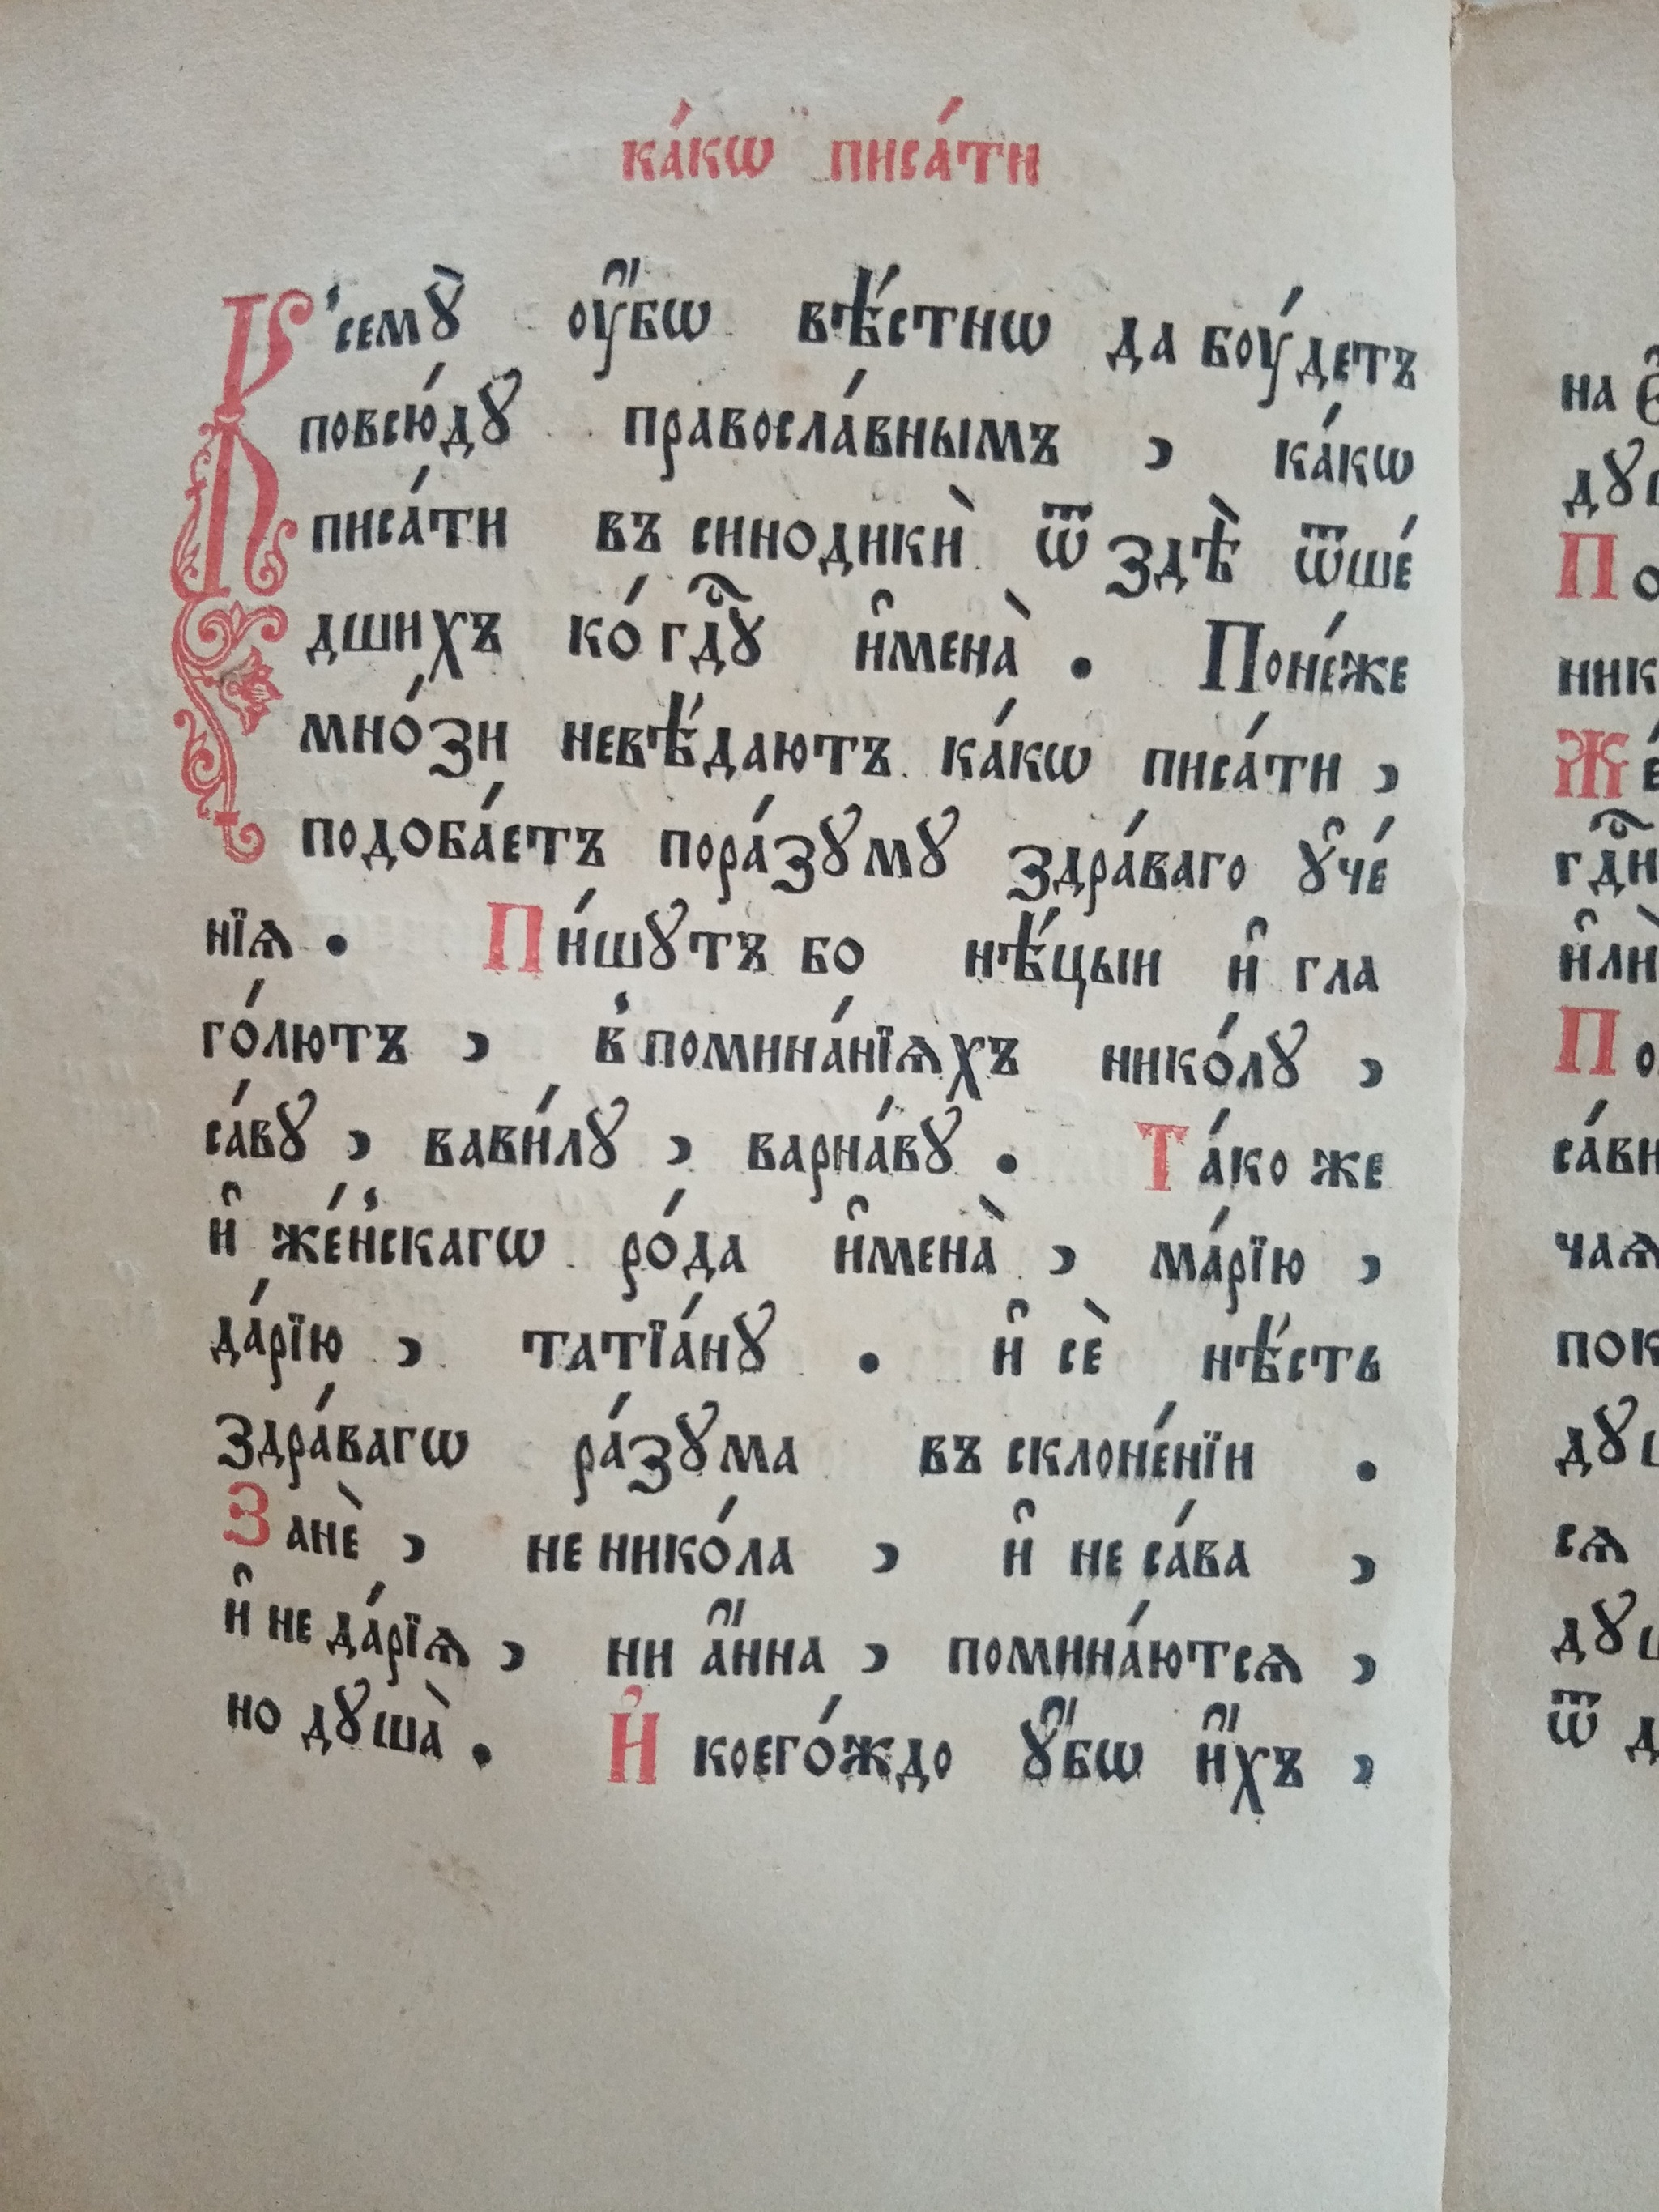 ка́кѡ писа́ти
В̾семꙋ̀ оу҆́бѡ вѣ́стнѡ да боу́детъ
повсю́дꙋ правосла́внымъ , ка́кѡ
писа́ти въ синодикѝ ѿ здѣ̀ ѿше́
дшихъ ко́ гдⷭ҇ꙋ и҆мена̀ . Поне́же
мно́зи невѣ́даютъ ка́кѡ писа́ти ,
подоба́етъ пора́зꙋмꙋ здра́ваго ꙋ҆че́
нїѧ . Пи́шꙋтъ бо нѣ́цыи и҆ гла
го́лютъ , в̾помина́нїѧхъ нико́лꙋ ,
са́вꙋ , вави́лꙋ , варна́вꙋ . Та́ко же
и҆ же́н̾скагѡ ро́да и҆мена̀ , ма́рїю ,
да́рїю , татїа́нꙋ . и҆ сѐ нѣ́сть
здра́вагѡ ра́зꙋма въ склоне́нїи .
Занѐ , не нико́ла , и҆ не са́ва ,
и҆ не да́рїѧ , ни а҆́нна , помина́ютсѧ ,
но дꙋша̀ . И҆ коего́ждо ꙋ҆́бѡ и҆́хъ ,
на
дꙋ
По
ник
Же́
гдⷭ҇н
и҆лѝ
По
са́ви
чаѧ
пок
дꙋш
сѧ
дꙋш
ѿ д